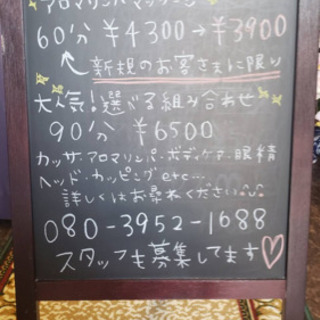 アロマリンパマッサージ
60分 ¥4300→¥3900
新規のお客さまに限り
大人気!選べる組み合わせ
90分 ¥6500
カッサ・アロマリンパ・ボディケア・眼精
ヘッド・カッピング etc...
詳しくはお尋ねください
080-3952-1688
スタッフも募集してます♡